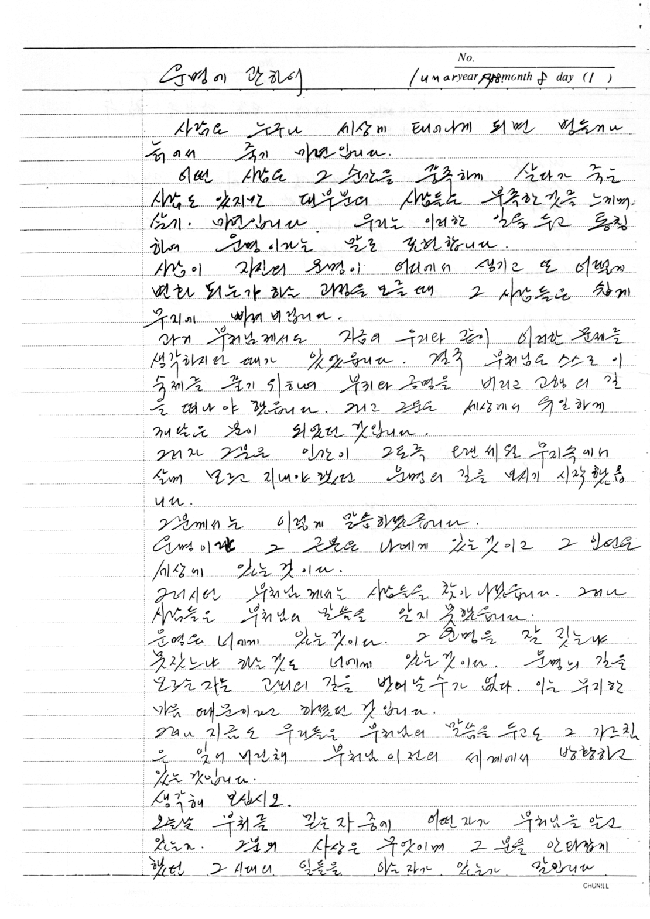 No.
운명에 관하여 lunar year month 8 day (1)
사람은 누구나 세상에 태어나게 되면 병들거나
늙어서 죽기 마련입니다.
어떤 사람은 그 순간을 만족하게 살다가 죽는
사람도 있지만 대부분의 사람들은 부족한 것을 느끼며
살기 마련입니다. 우리는 이러한 일을 두고 통칭
하여 운명이라는 말로 표현합니다.
사람이 자신의 운명이 어디에서 생기고 또 어떻게
변화 되는가 하는 과정을 모를 때 그 사람들은 쉽게
무지에 빠져 버립니다.
과거 부처님께서도 지금의 우리와 같이 이러한 문제를
생각하시던 때가 있었읍니다. 결국 부처님은 스스로 이
숙제를 풀기 위하여 부귀와 공명을 버리고 고행의 길
을 떠나야 했읍니다. 그리고 그분은 세상에서 유일하게
깨달은 분이 되었던 것입니다.
그러자 그분은 인간이 그토록 오랜 세월 무지속에서
살며 모르고 지내야 했던 운명의 길을 보시기 시작했읍
니다.
그분께서는 이렇게 말씀하셨읍니다.
운명이란 그 근본은 나에게 있는 것이고 그 인연은
세상에 있는 것이다.
그러시던 부처님께서는 사람들을 찾아 나섰읍니다. 그러나
사람들은 부처님의 말씀을 알지 못했읍니다.
운명은 너에게 있는 것이다. 그 운명을 잘 짓느냐
못짓느냐 하는 것도 너에게 있는 것이다. 운명의 길을
모르는 자는 고뇌의 길을 벗어날 수가 없다. 이는 무지한
마음 때문이라고 하셨던 것입니다.
그러나 지금도 우리들은 부처님의 말씀을 두고도 그 가르침
은 잊어 버린채 부처님 이전의 세계에서 방황하고
있는 것입니다.
생각해 보십시오.
오늘날 부처를 믿는 자 중에 어떤 자가 부처님을 알고
있는가. 그분의 사상은 무엇이며 그 분을 안타깝게
했던 그 시대의 일들을 아는 자가 있는가 말입니다.
CHUNILL